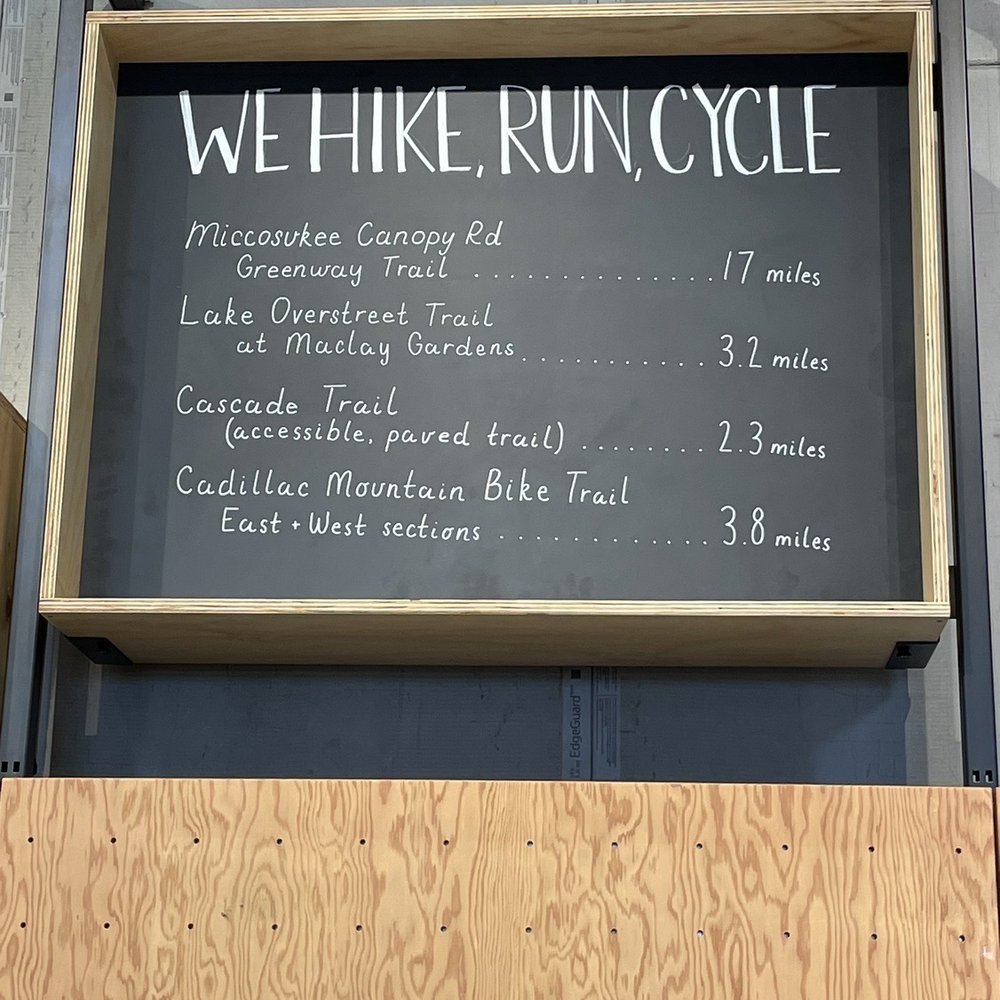 WE HIKE, RUN, CYCLE
Miccosukee Canopy Rd
Greenway Trail ............... 17 miles
Lake Overstreet Trail
at Maclay Gardens............ 3.2 miles
Cascade Trail
(accessible, paved trail) ........ 2.3 miles
Cadillac Mountain Bike Trail
East + West sections ............. 3.8 miles
EdgeGuard